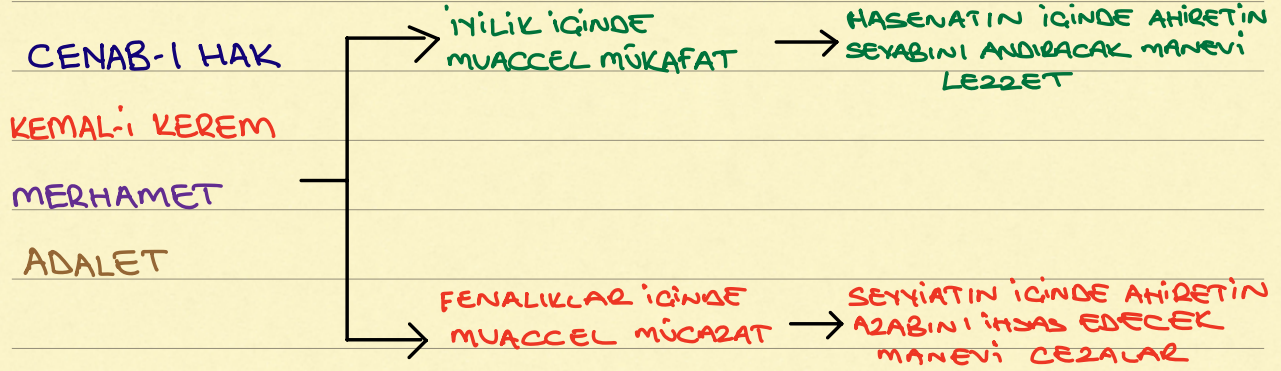 CENAB-I HAK
KEMAL-i KEREM
MERHAMET
ADALET
İYİLİK İÇİNDE
MUACCEL MÜKAFAT
HASENATIN İÇİNDE AHİRETİN
SEVABINI ANDIRACAK MANEVİ
LEZZET
FENALIKLAR İÇİNDE
MUACCEL MÜCAZAT
SEYYİATIN İÇİNDE AHİRETİN
AZABINI İHSAS EDECEK
MANEVİ CEZALAR